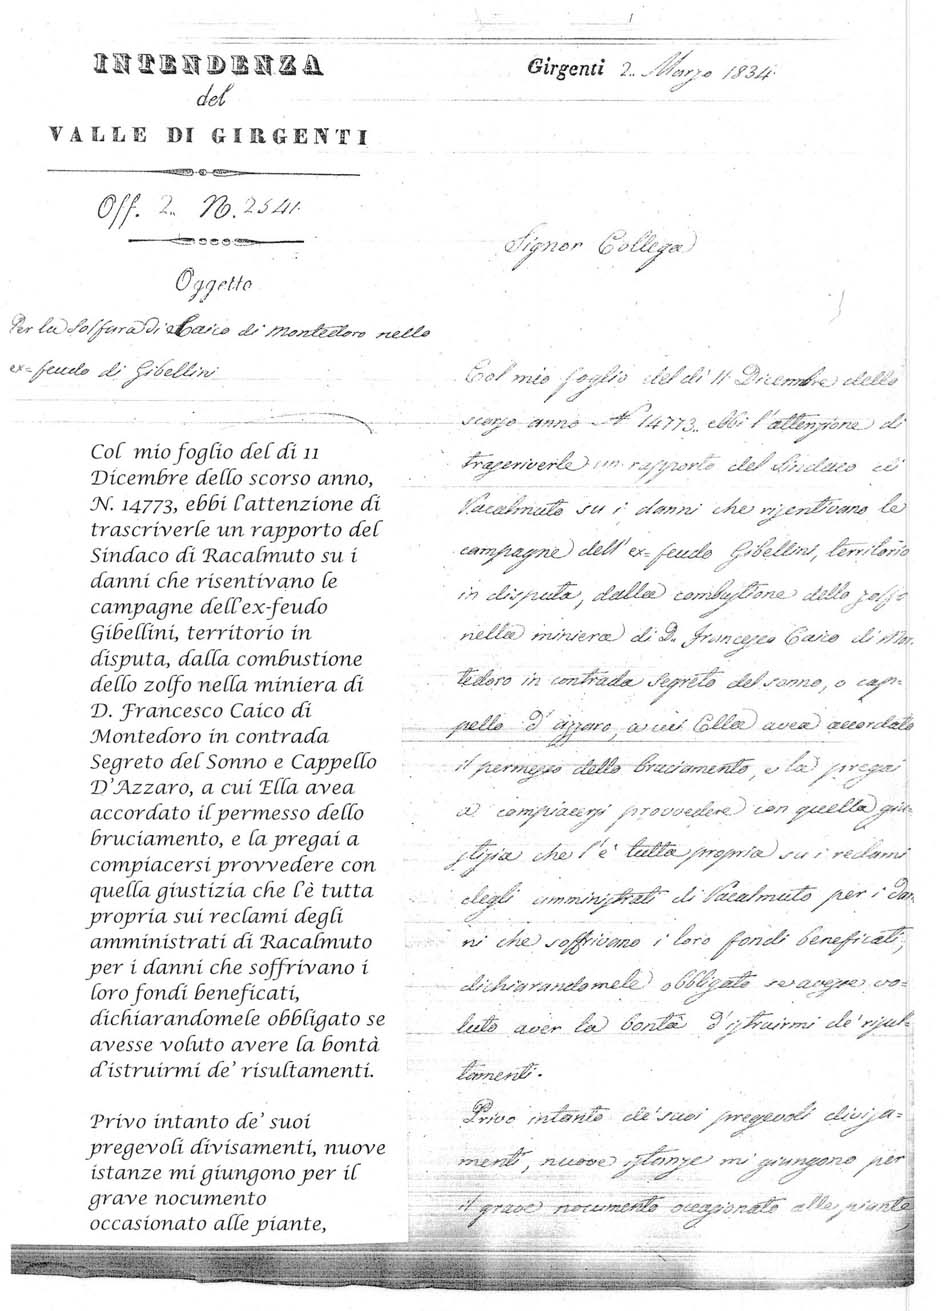 INTENDENZA
del
VALLE DI GIRGENTI
Off. 2.. N. 2541.
Oggetto
Per la Solfura di Caico di Montedoro nello
ex=feudo di Gibellini
Girgenti 2.. Marzo 1834.
Signor Collega
Col mio foglio del di 11
Dicembre dello scorso anno,
N. 14773, ebbi l'attenzione di
trascriverle un rapporto del
Sindaco di Racalmuto su i
danni che risentivano le
campagne dell'ex-feudo
Gibellini, territorio in
disputa, dalla combustione
dello zolfo nella miniera di
D. Francesco Caico di
Montedoro in contrada
Segreto del Sonno e Cappello
D'Azzaro, a cui Ella avea
accordato il permesso dello
bruciamento, e la pregai a
compiacersi provvedere con
quella giustizia che l'è tutta
propria sui reclami degli
amministrati di Racalmuto
per i danni che soffrivano i
loro fondi beneficati,
dichiarandomele obbligato se
avesse voluto avere la bontà
d'istruirmi de' risultamenti.
Privo intanto de' suoi
pregevoli divisamenti, nuove
istanze mi giungono per il
grave nocumento
occasionato alle piante,
Col mio foglio del di 11 Dicembre dello
scorso anno N. 14773.. ebbi l'attenzione di
trascriverle un rapporto del Sindaco di
Racalmuto su i danni che risentivano le
campagne dell'ex=feudo Gibellini, territorio
in disputa, dalla combustione dello zolfo
nella miniera di D. Francesco Caico di Mon=
tedoro in contrada Segreto del sonno, o cap=
pello d'azzaro, a cui Ella avea accordato
il permesso dello bruciamento, e la pregai
a compiacersi provvedere con quella giu=
stizia che l'è tutta propria su i reclami
degli amministrati di Racalmuto per i dan
ni che soffrivano i loro fondi beneficati,
dichiarandomele obbligato se avesse vo=
luto aver la bontà d'istruirmi de' risul=
tamenti.
Privo intanto de' suoi pregevoli divisa=
menti, nuove istanze mi giungono per
il grave nocumento occasionato alle piante,